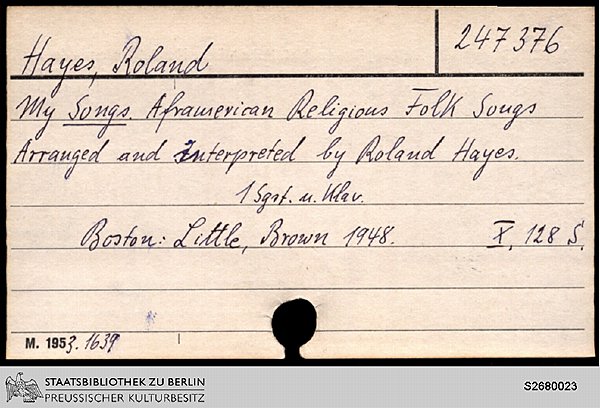 Hayes, Roland
247376
My Songs. Aframerican Religious Folk Songs
Arranged and Interpreted by Roland Hayes.
1 Sgst. u. Klav.
Boston: Little, Brown 1948. X, 128 S.
M. 1953. 1639
STAATSBIBLIOTHEK ZU BERLIN
PREUSSISCHER KULTURBESITZ
S2680023